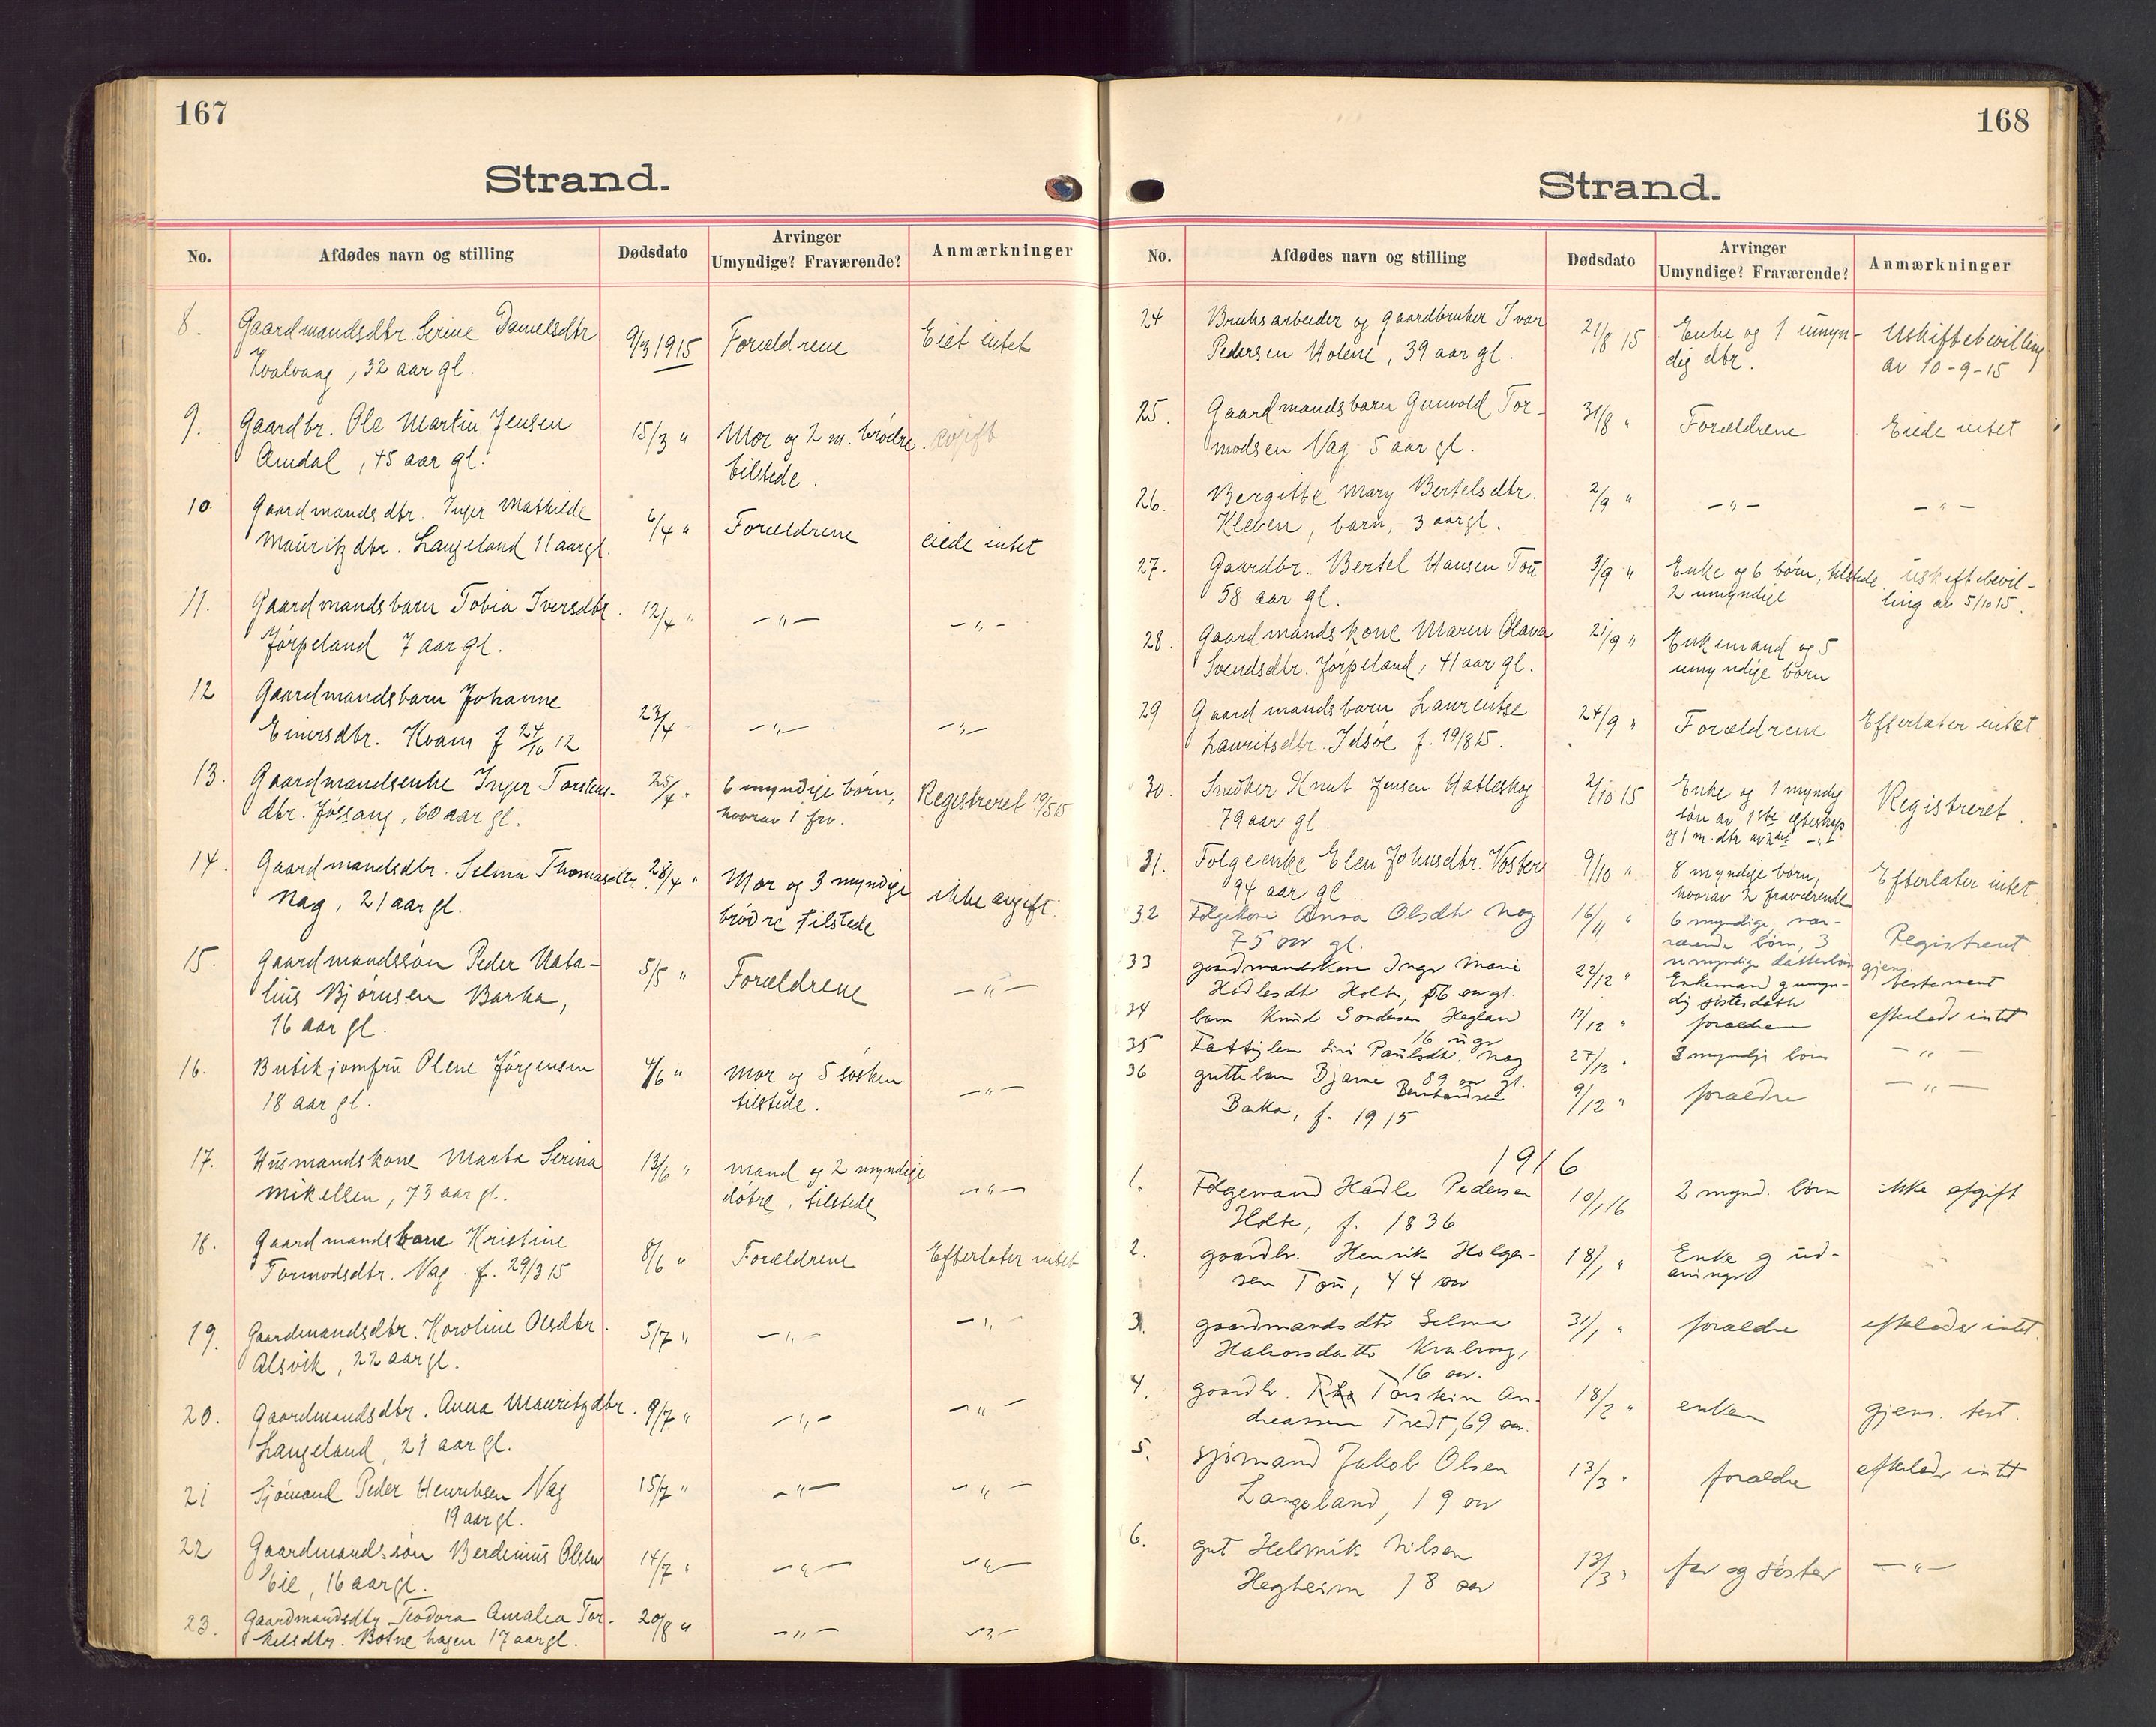 167
Strand.
No. Afdødes navn og stilling Dødsdato Arvinger Umyndige? Fraværende? Anmærkninger
8. Gaardmandsdbr. Serine Danielsdtr 9/3 1915 Forældrene Eiet intet
Kvalvaag, 32 aar gl.
9. Gaardbr. Ole Martin Jensen 15/3 " Mor og 2 m. brødre avgift
Amdal, 45 aar gl. tilstede.
10. Gaardmandsdtr. Inger Mathilde 6/4 " Forældrene eiede intet
Mauritzdtr. Langeland 11 aar gl.
11. Gaardmandsbarn Tobia Iversdtr. 12/4 " —"— —"—
Jørpeland 7 aar gl.
12 Gaardmandsbarn Johanne 23/4 —"— —"—
Einersdtr. Kvam f 24/10 12
13. Gaardmandsenke Inger Torstens- 25/4 " 6 myndige børn, Registreret 19/5 15
dtr. Jøssang, 60 aar gl. hvorav 1 frv.
14. Gaardmandsdtr. Selma Thomasdtr. 28/4 " Mor og 3 myndige ikke avgift.
Nag, 21 aar gl. brødre tilstede
15. Gaardmandssøn Peder Nata- 5/5 " Forældrene —"—
lius Bjørnsen Barka,
16 aar gl.
16. Butikjomfru Olene Jørgensen 4/6 " Mor og 5 søsken —"—
18 aar gl. tilstede.
17. Husmandskone Marta Serina 13/6 " mand og 2 myndige —"—
Mikelsen, 73 aar gl. døtre, tilstede
18. Gaardmandsbarn Kristine 8/6 " Forældrene Efterlater intet
Tormodsdtr. Nag f. 29/3 15
19. Gaardmandsdtr. Karoline Olsdtr. 5/7 " —"— —"—
Alsvik, 22 aar gl.
20. Gaardmandsdtr. Anna Mauritzdtr. 9/7 " —"— —"—
Langeland, 21 aar gl.
21 Sjømand Peder Henriksen Nag 15/7 " —"— —"—
19 aar gl.
22 Gaardmandssøn Berdinius Olsen 14/7 " —"— —"—
16 aar gl.
23. Gaardmandsdtr Teodora Amalia Tor- 20/8 " —"— —"—
kelsdtr. Botnehagen 17 aar gl.
168
Strand.
No. Afdødes navn og stilling Dødsdato Arvinger Umyndige? Fraværende? Anmærkninger
24 Bruksarbeider og gaardbruker Ivar 21/8 15 Enke og 1 umyn- Uskiftebevilling
Pedersen Holene, 39 aar gl. dig dtr. av 10-9-15
25. Gaardmandsbarn Gunvald Tor- 31/8 " Forældrene Eiede intet
modsen Nag 5 aar gl.
26. Bergitte Mary Bertelsdtr. 2/9 " —"— —"—
Kleven, barn, 3 aar gl.
27. Gaardbr. Bertel Hansen Tou 3/9 " Enke og 6 børn, tilstede uskiftebevil-
58 aar gl. 2 umyndige ling av 5/10 15.
28. Gaardmandskone Maren Olava 21/9 " Enkemand og 5
Svendsdtr. Jørpeland, 41 aar gl. umyndige børn
29 Gaardmandsbarn Laurentse 24/9 " Forældrene Efterlater intet
Lauritsdtr. Idsøe f. 19/8 15.
30. Snedker Knut Jensen Hatleskog 2/10 15 Enke og 1 myndig Registreret.
79 aar gl. søn av 1ste egteskap
og 1 m. dtr av 2det —"—
31. Følgeenke Elen Johnsdtr. Voster 9/10 " 8 myndige børn, Efterlater intet
94 aar gl. hvorav 2 fraværende
32 Følgekone Anna Olsdtr Nag 16/11 " 6 myndige, nær- Registreret
75 aar gl. værende børn, 3
umyndige datterbørn
33 gaardmandskone Inger Marie 22/12 " Enkemand og umyn- gjens. testament
Hadlesdtr Holte, 56 aar gl. dig søsterdatter
34 barn Knud Hegland 11/12 " forældrene efterlader intet
16 uger
35 Fattiglem Siri Paulsdtr. Nag 27/12 " 3 myndige børn —"—
89 aar gl.
36 guttebarn Bjarne Berntsen 9/12 " forældre —"—
Barka, f. 1915
1916
1. Følgemand Hadle Pedersen 10/1 16 2 mynd. børn ikke afgift
Holte, f. 1836
2. gaardbr. Henrik Holger- 18/1 " Enke og ud-
sen Tou, 44 aar arvinger
3. gaardmandsdtr Selma 31/1 " forældre efterlader intet
Halvorsdatter Kvalvaag,
16 aar.
4. gaardbr. Torstein An- 18/2 " enken gjens. test.
dreassen Tredt, 69 aar.
5. sjømand Jakob Olsen 13/3 " forældre efterlader intet
Langeland, 19 aar
6. gut Helmik Nilsen 13/3 " far og søster —"—
Hegheim 18 aar